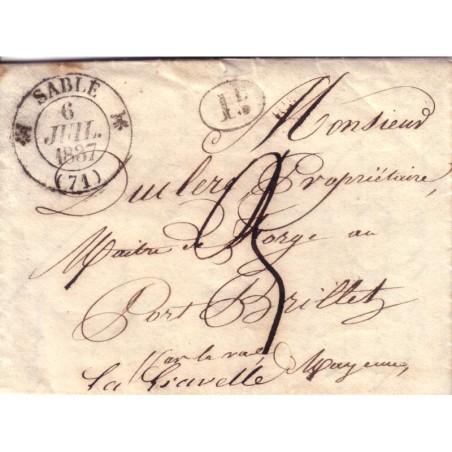 SABLÉ
6
JUIL.
1837
(71)
1D
Monsieur
Duclerc Propriétaire,
Maitre de Forge au
Port Brillet
par laval
La Gravelle Mayenne